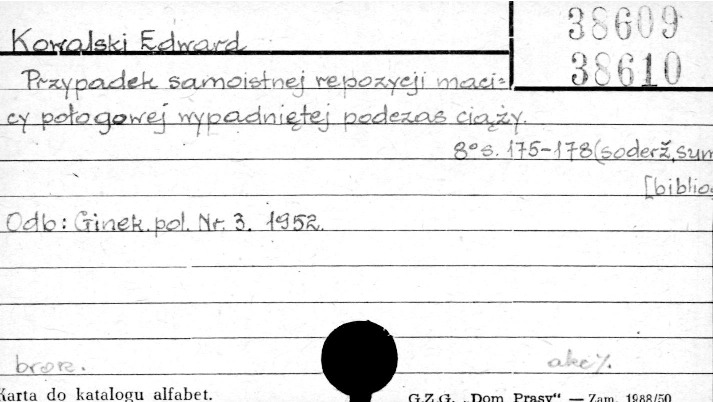 38609
Kowalski Edward
38610
Przypadek samoistnej repozycji maci=
cy połogowej wypadniętej podczas ciąży.
8° s. 175-178 (soderž, sum
[bibliog
Odb: Ginek. pol. Nr. 3. 1952.
brosz. akc.
Karta do katalogu alfabet. G.Z.G. „Dom Prasy" — Zam. 1988/50